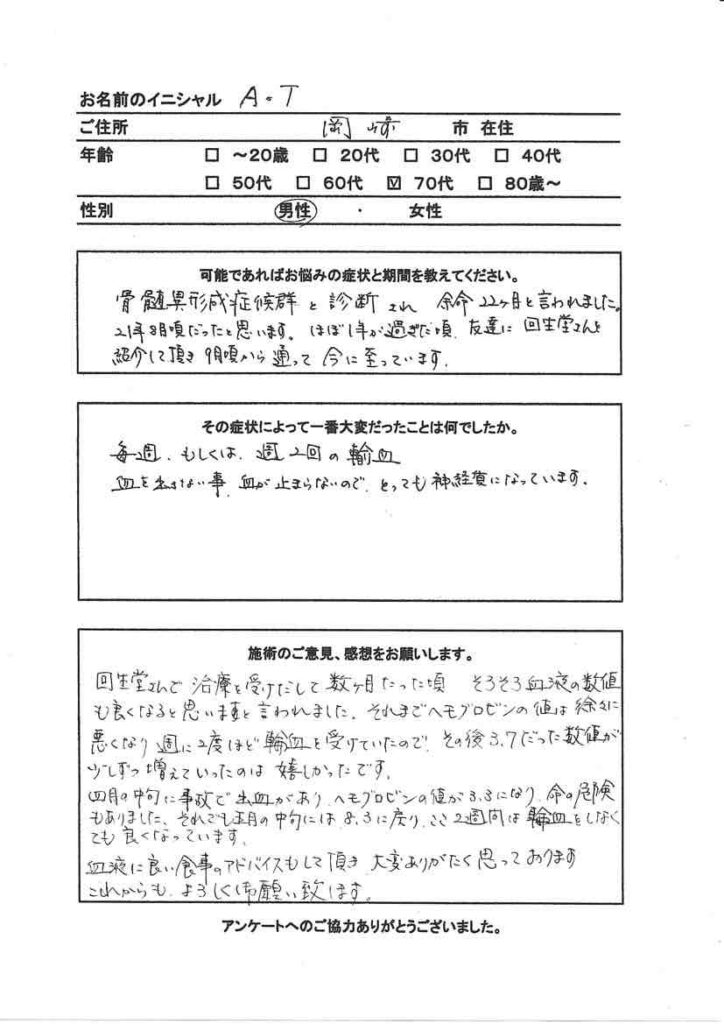 お名前のイニシャル A・T
ご住所 岡崎 市 在住
年齢 □ ～20歳 □ 20代 □ 30代 □ 40代
□ 50代 □ 60代 ☑ 70代 □ 80歳～
性別 男性 ・ 女性
可能であればお悩みの症状と期間を教えてください。
骨髄異形成症候群と診断され 余命22ヶ月と言われました。
21年8月頃だったと思います。ほぼ1年が過ぎた頃、友達に回生堂さんを
紹介して頂き9月頃から通って今に至っています。
その症状によって一番大変だったことは何でしたか。
毎週、もしくは、週2回の輸血
血を出さない事、血が止まらないので、とっても神経質になっています。
施術のご意見、感想をお願いします。
回生堂さんで治療を受けだして数ヶ月たった頃 そろそろ血液の数値
も良くなると思いますと言われました。それまでヘモグロビンの値は徐々に
悪くなり週に2度ほど輸血を受けていたので、その後3.7だった数値が
少しずつ増えていったのは嬉しかったです。
四月の中旬に事故で出血があり、ヘモグロビンの値が3.3になり、命の危険
もありました、それでも五月の中旬には8.3に戻り、ここ2週間は輸血をしなく
ても良くなっています。
血液に良い食事のアドバイスもして頂き 大変ありがたく思っております
これからも、よろしくお願い致します。
アンケートへのご協力ありがとうございました。